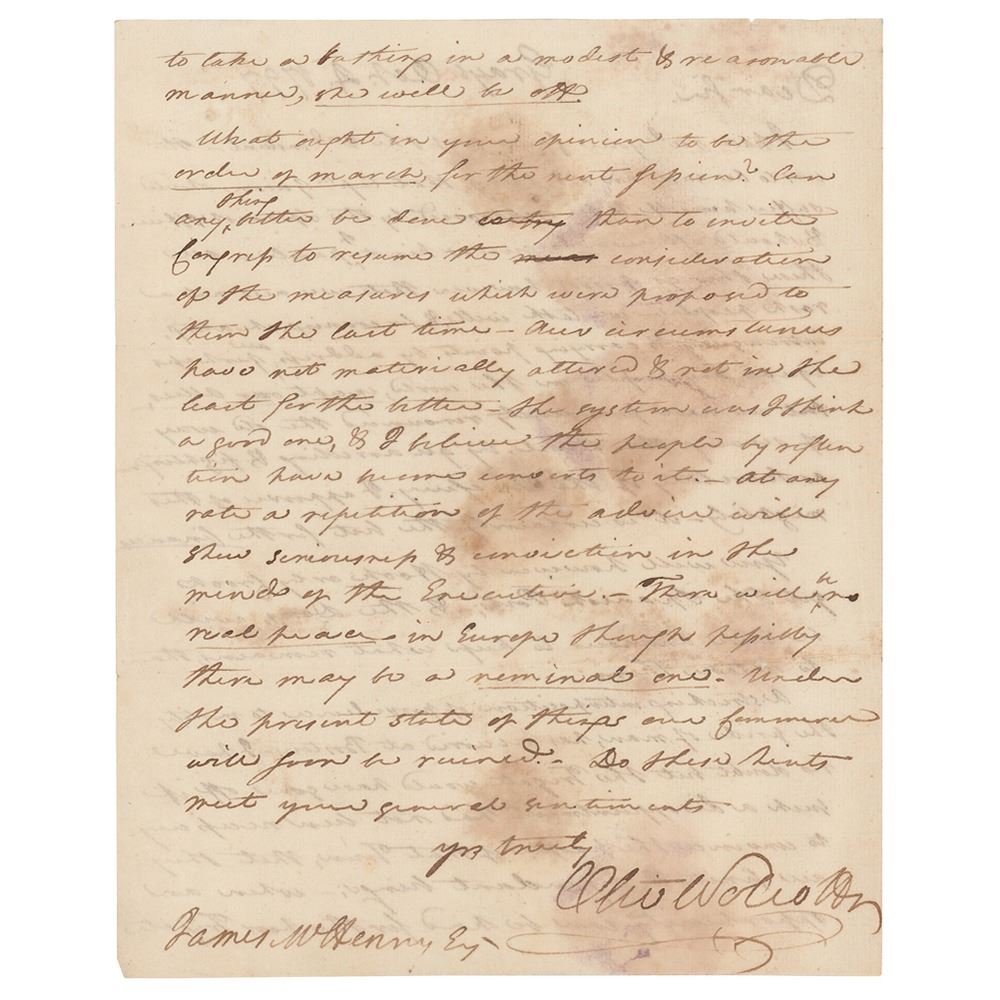 to take a bathing in a modest & reasonable
manner, she will be off.
What ought in your opinion to be the
order of march, for the next session? Can
thing
any better be done than to invite
Congress to resume the consideration
of the measures which were proposed to
them the last time – Our circumstances
have not materially altered & not in the
least for the better – the system was I think
a good one, & I believe the people by reflec
tion have become converts to it. – At any
rate a repetition of the advice will
shew seriousness & conviction in the
minds of the Executive. – There will no
real peace in Europe though possibly
there may be a nominal one. – Under
the present state of things our Commerce
will soon be ruined. – Do these hints
meet your general sentiments
yrs truly
Oliv Wolcott Jr
James McHenry Esq